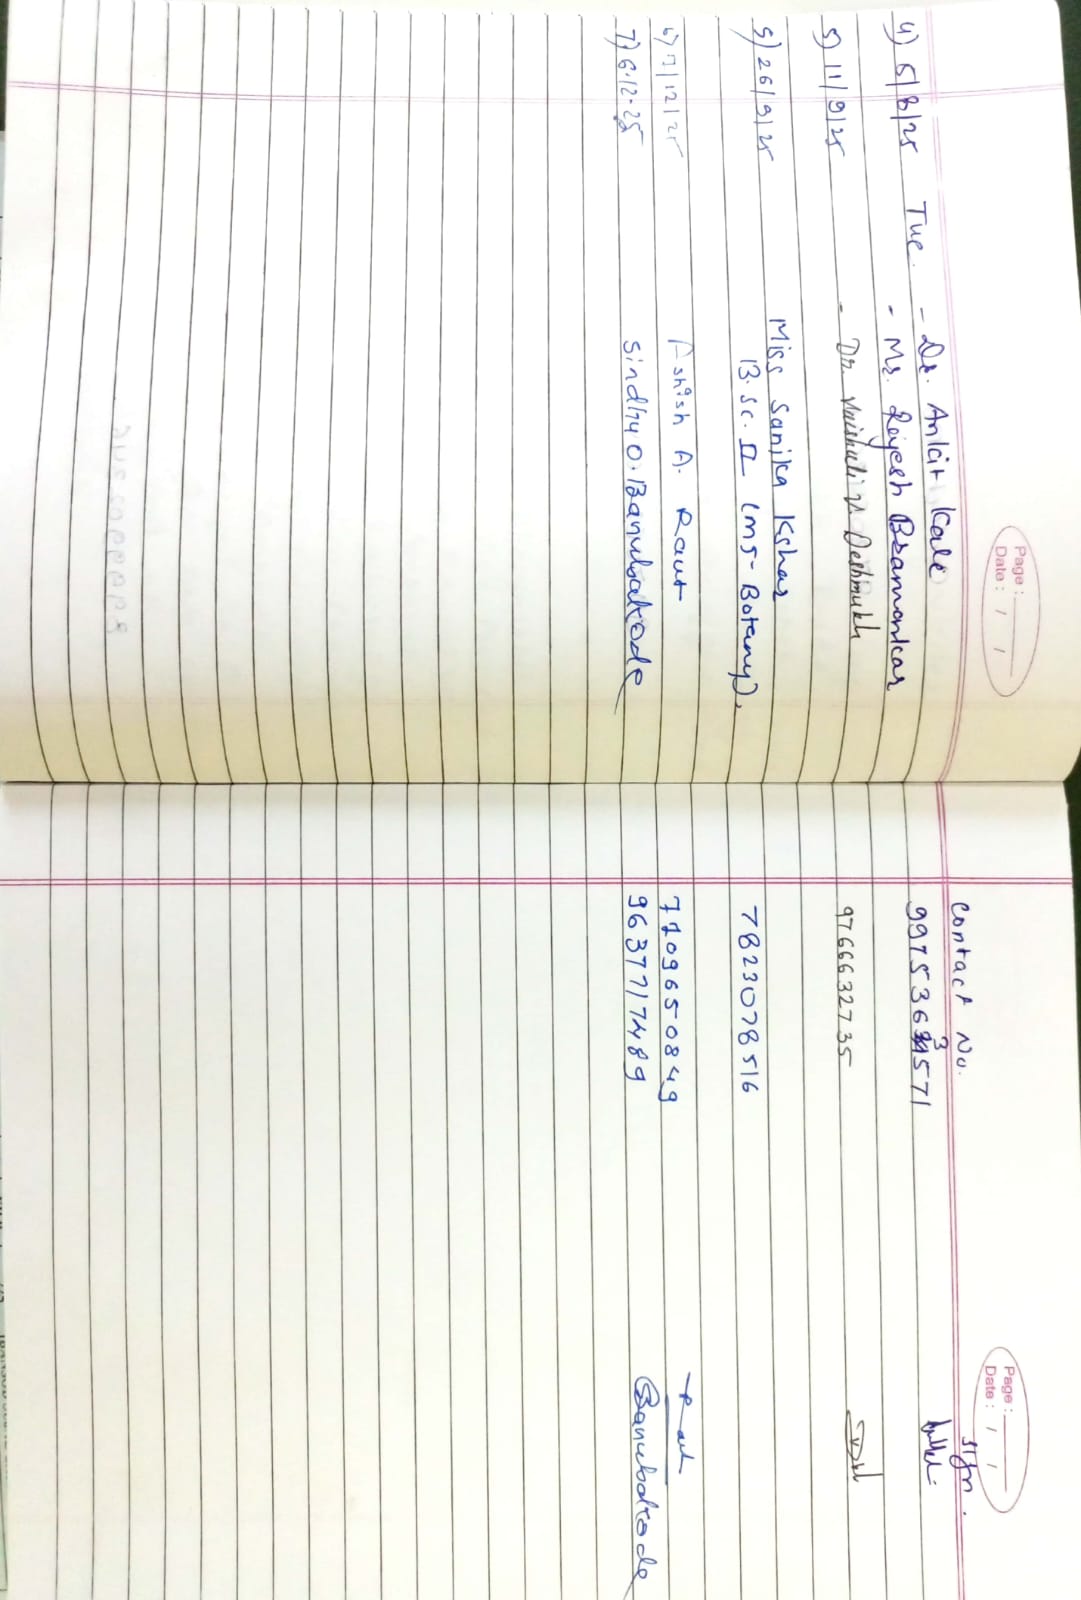 Page :
Date : / /
4) 5/8/25 Tue. - Dr. Ankit Kale
- Mr. Rajesh Bramankar
5) 11/9/25 - Dr. Vaishali V. Deshmukh
Miss Sanika Kshar
5) 26/9/25 B.Sc. II (MJ- Botany).
6) 1/12/25 Ashish A. Raut
7) 6.12.25 Sindhu O. Banubakode
Page :
Date : / /
Contact No. sign.
3
9975363571
9766632735
7823078516
7709650849 Raut
9637717489 Banubakode